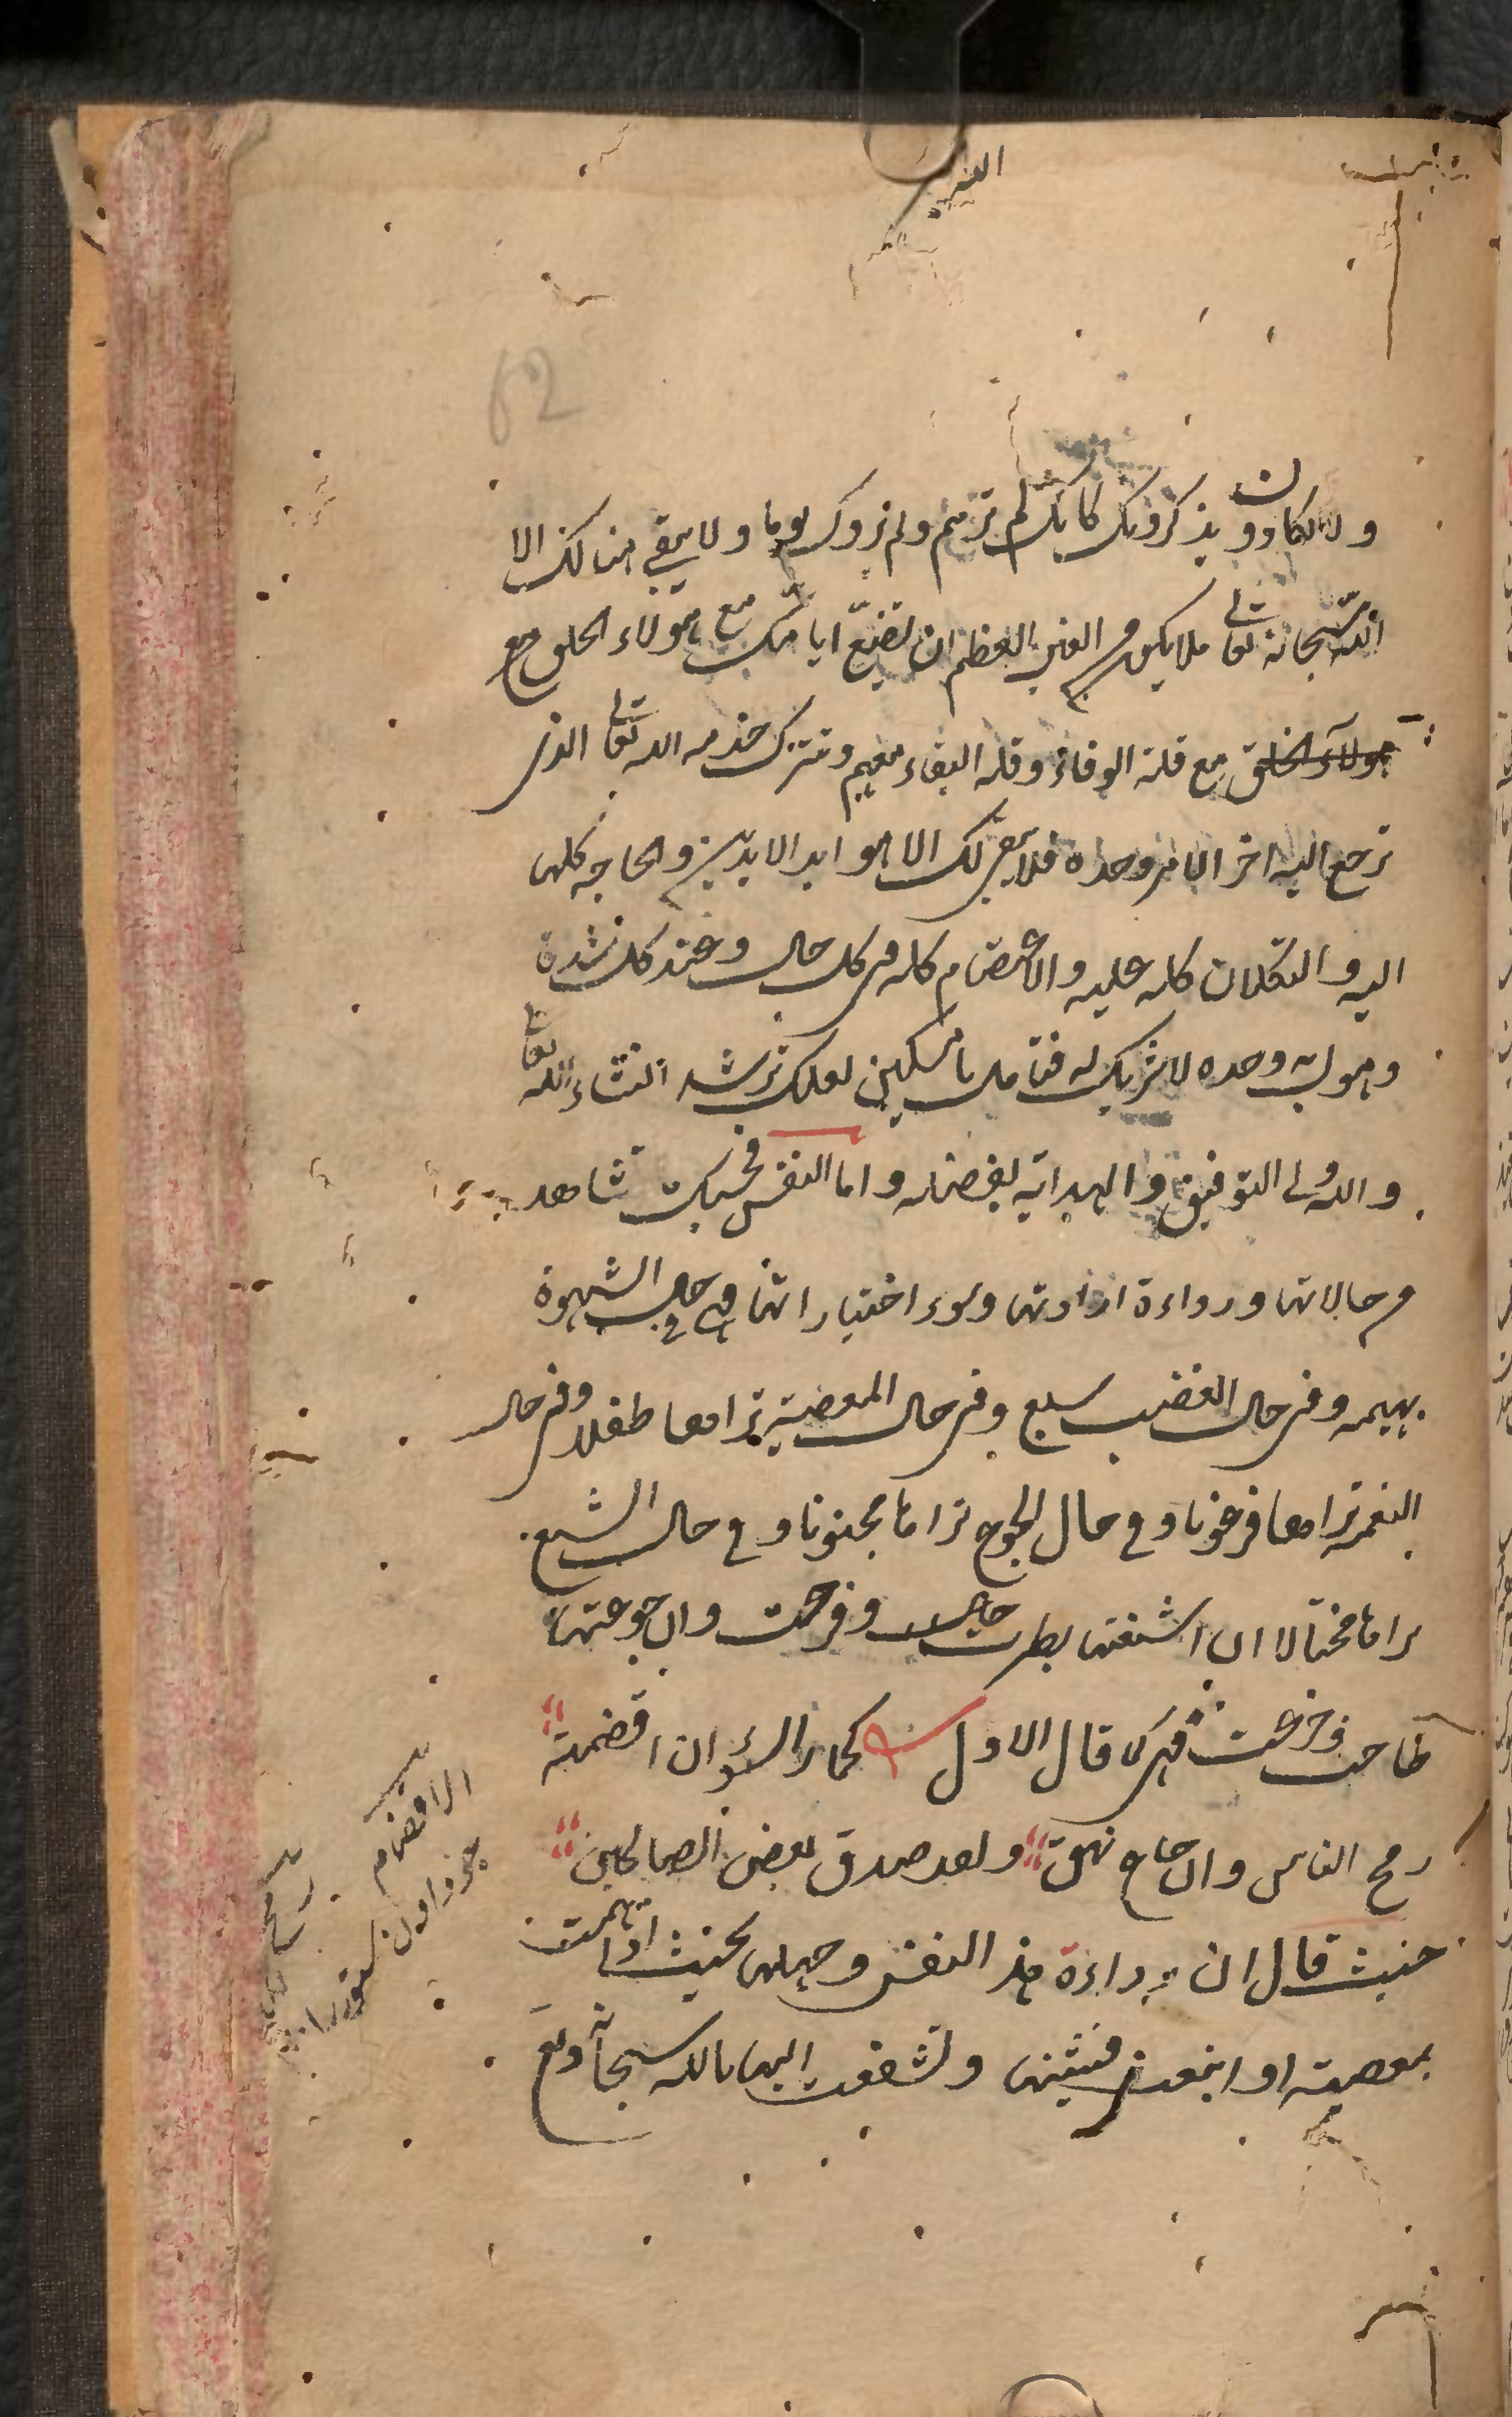 62
ولا يكادون يذكرونك كانك لم ترهم ولم يروك يوما ولا يبقى هنالك الا
الله سبحانه تعالى فلا يكون من الغبن العظيم ان تضيع ايامك مع هؤلاء الخلق مع
هولاء الخلق مع قلة الوفاء وقلة البقاء معهم وتترك خدمه الله تعالى الذى
ترجع اليه اخر الامر وحده فلا يبقى لك الا هو ابد الابدين والحاجه كلها
اليه والتكلان كله عليه والاعتصام كله فى كل حال وعند كل شدة
وهول به وحده لا شريك له فتامل يا مسكين لعلك ترشد انشاء الله تعا
والله ولى التوفيق والهداية بفضله واما النفس فحسبك تشاهد
من حالاتها ورداءة ارادتها وسوء اختياراتها فهى فى حال الشهوة
بهيمه وفى حال الغضب سبع وفى حال المعصية تراها طفلا وفى حال
النعمة تراها فرعونا وفى حال الجوع تراها مجنونا وفى حال الشبع
تراها مختالا ان اشبعتها بطرت وفرحت وان جوعتها
صاحت وجزعت فهى كما قال الاول كحمار السوء ان اقضمته
رمح الناس وان جاع نهق ولقد صدق بعض الصالحين
حيث قال ان رداءة هذه النفس وجهلها بحيث اذا همت
بمعصية او انبعثت وتشفعت اليها بالله سبحانه وتع
الاقضام